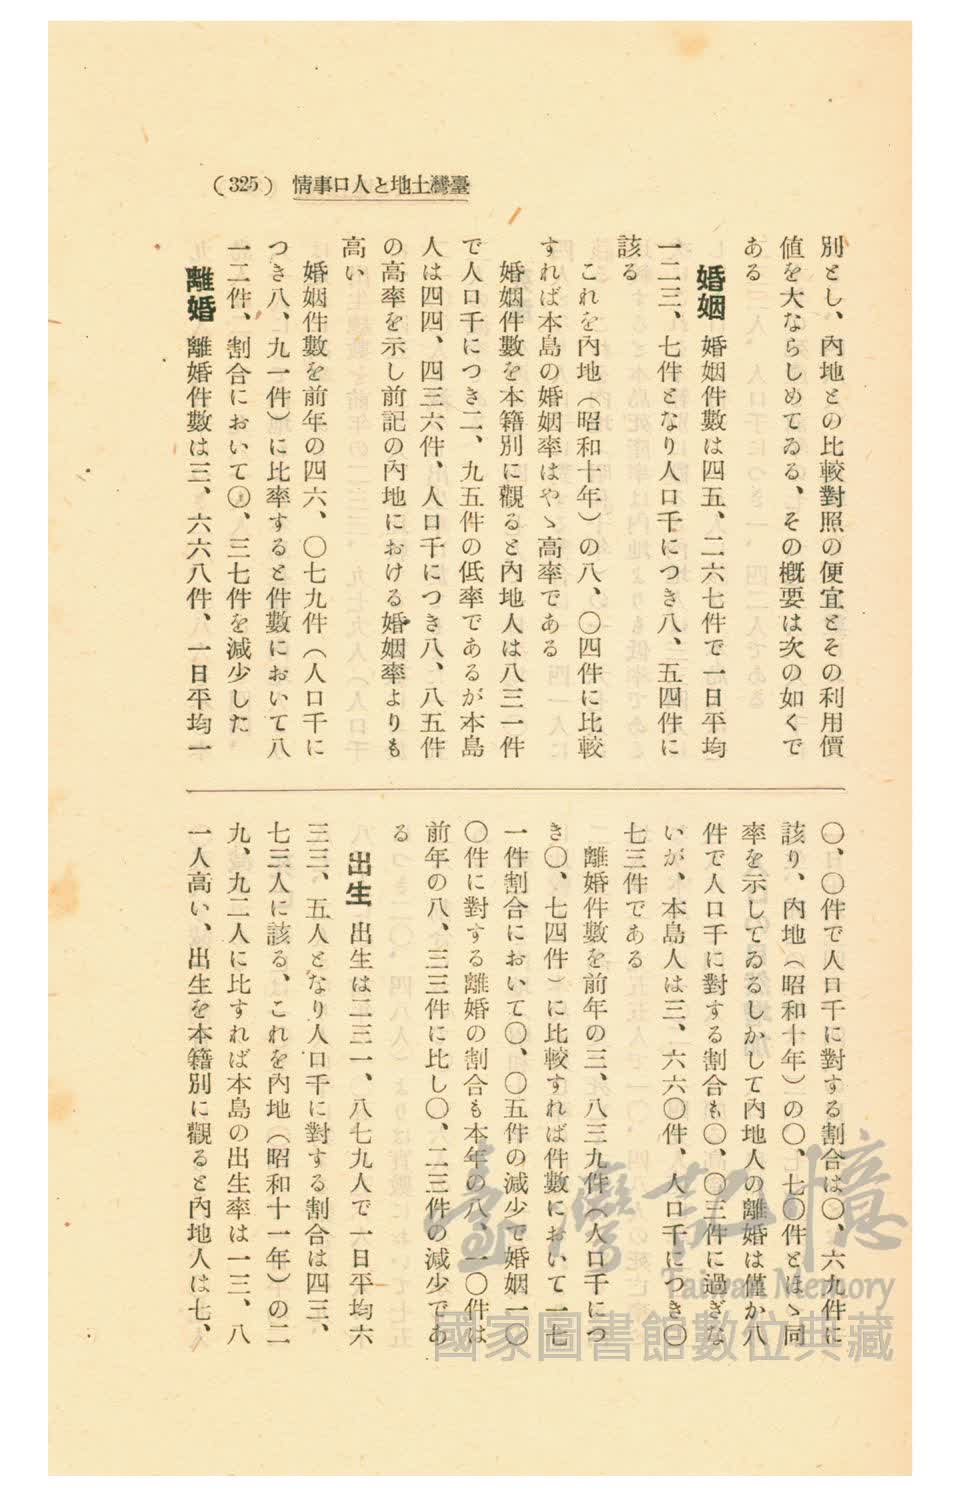 (325) 情事口人と地土灣臺
別とし、內地との比較對照の便宜とその利用價
値を大ならしめてゐる、その概要は次の如くで
ある
婚姻 婚姻件數は四五、二六七件で一日平均
一二三、七件となり人口千につき八、五四件に
該る
これを內地（昭和十年）の八、〇四件に比較
すれば本島の婚姻率はやゝ高率である
婚姻件數を本籍別に觀ると內地人は八三一件
で人口千につき二、九五件の低率であるが本島
人は四四、四三六件、人口千につき八、八五件
の高率を示し前記の內地における婚姻率よりも
高い
婚姻件數を前年の四六、〇七九件（人口千に
つき八、九一件）に比率すると件數において八
一二件、割合において〇、三七件を減少した
離婚 離婚件數は三、六六八件、一日平均一
〇、〇件で人口千に對する割合は〇、六九件に
該り、內地（昭和十年）の〇、七〇件とほゝ同
率を示してゐるしかして內地人の離婚は僅か八
件で人口千に對する割合も〇、〇三件に過ぎな
いが、本島人は三、六六〇件、人口千につき〇
七三件である
離婚件數を前年の三、八三九件（人口千につ
き〇、七四件）に比較すれば件數において一七
一件割合において〇、〇五件の減少で婚姻一〇
〇件に對する離婚の割合も本年の八、一〇件は
前年の八、三三件に比し〇、二三件の減少であ
る
出生 出生は二三一、八七九人で一日平均六
三三、五人となり人口千に對する割合は四三、
七三人に該る、これを內地（昭和十一年）の二
九、九二人に比すれば本島の出生率は一三、八
一人高い、出生を本籍別に觀ると內地人は七、
臺灣記憶
Taiwan Memory
國家圖書館數位典藏